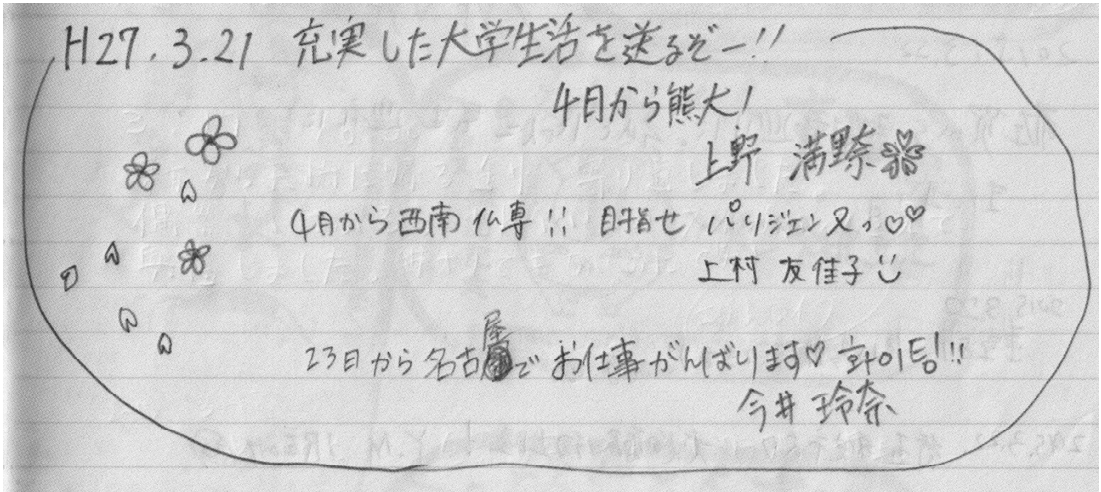 H27.3.21 充実した大学生活を送るぞー!!
4月から熊大!
上野 満黎
4月から西南仏専!! 目指せ パリジェンヌっ♡♡
上村 友佳子
23日から名古屋でお仕事がんばります♡ 화이팅!!!
今井 玲奈